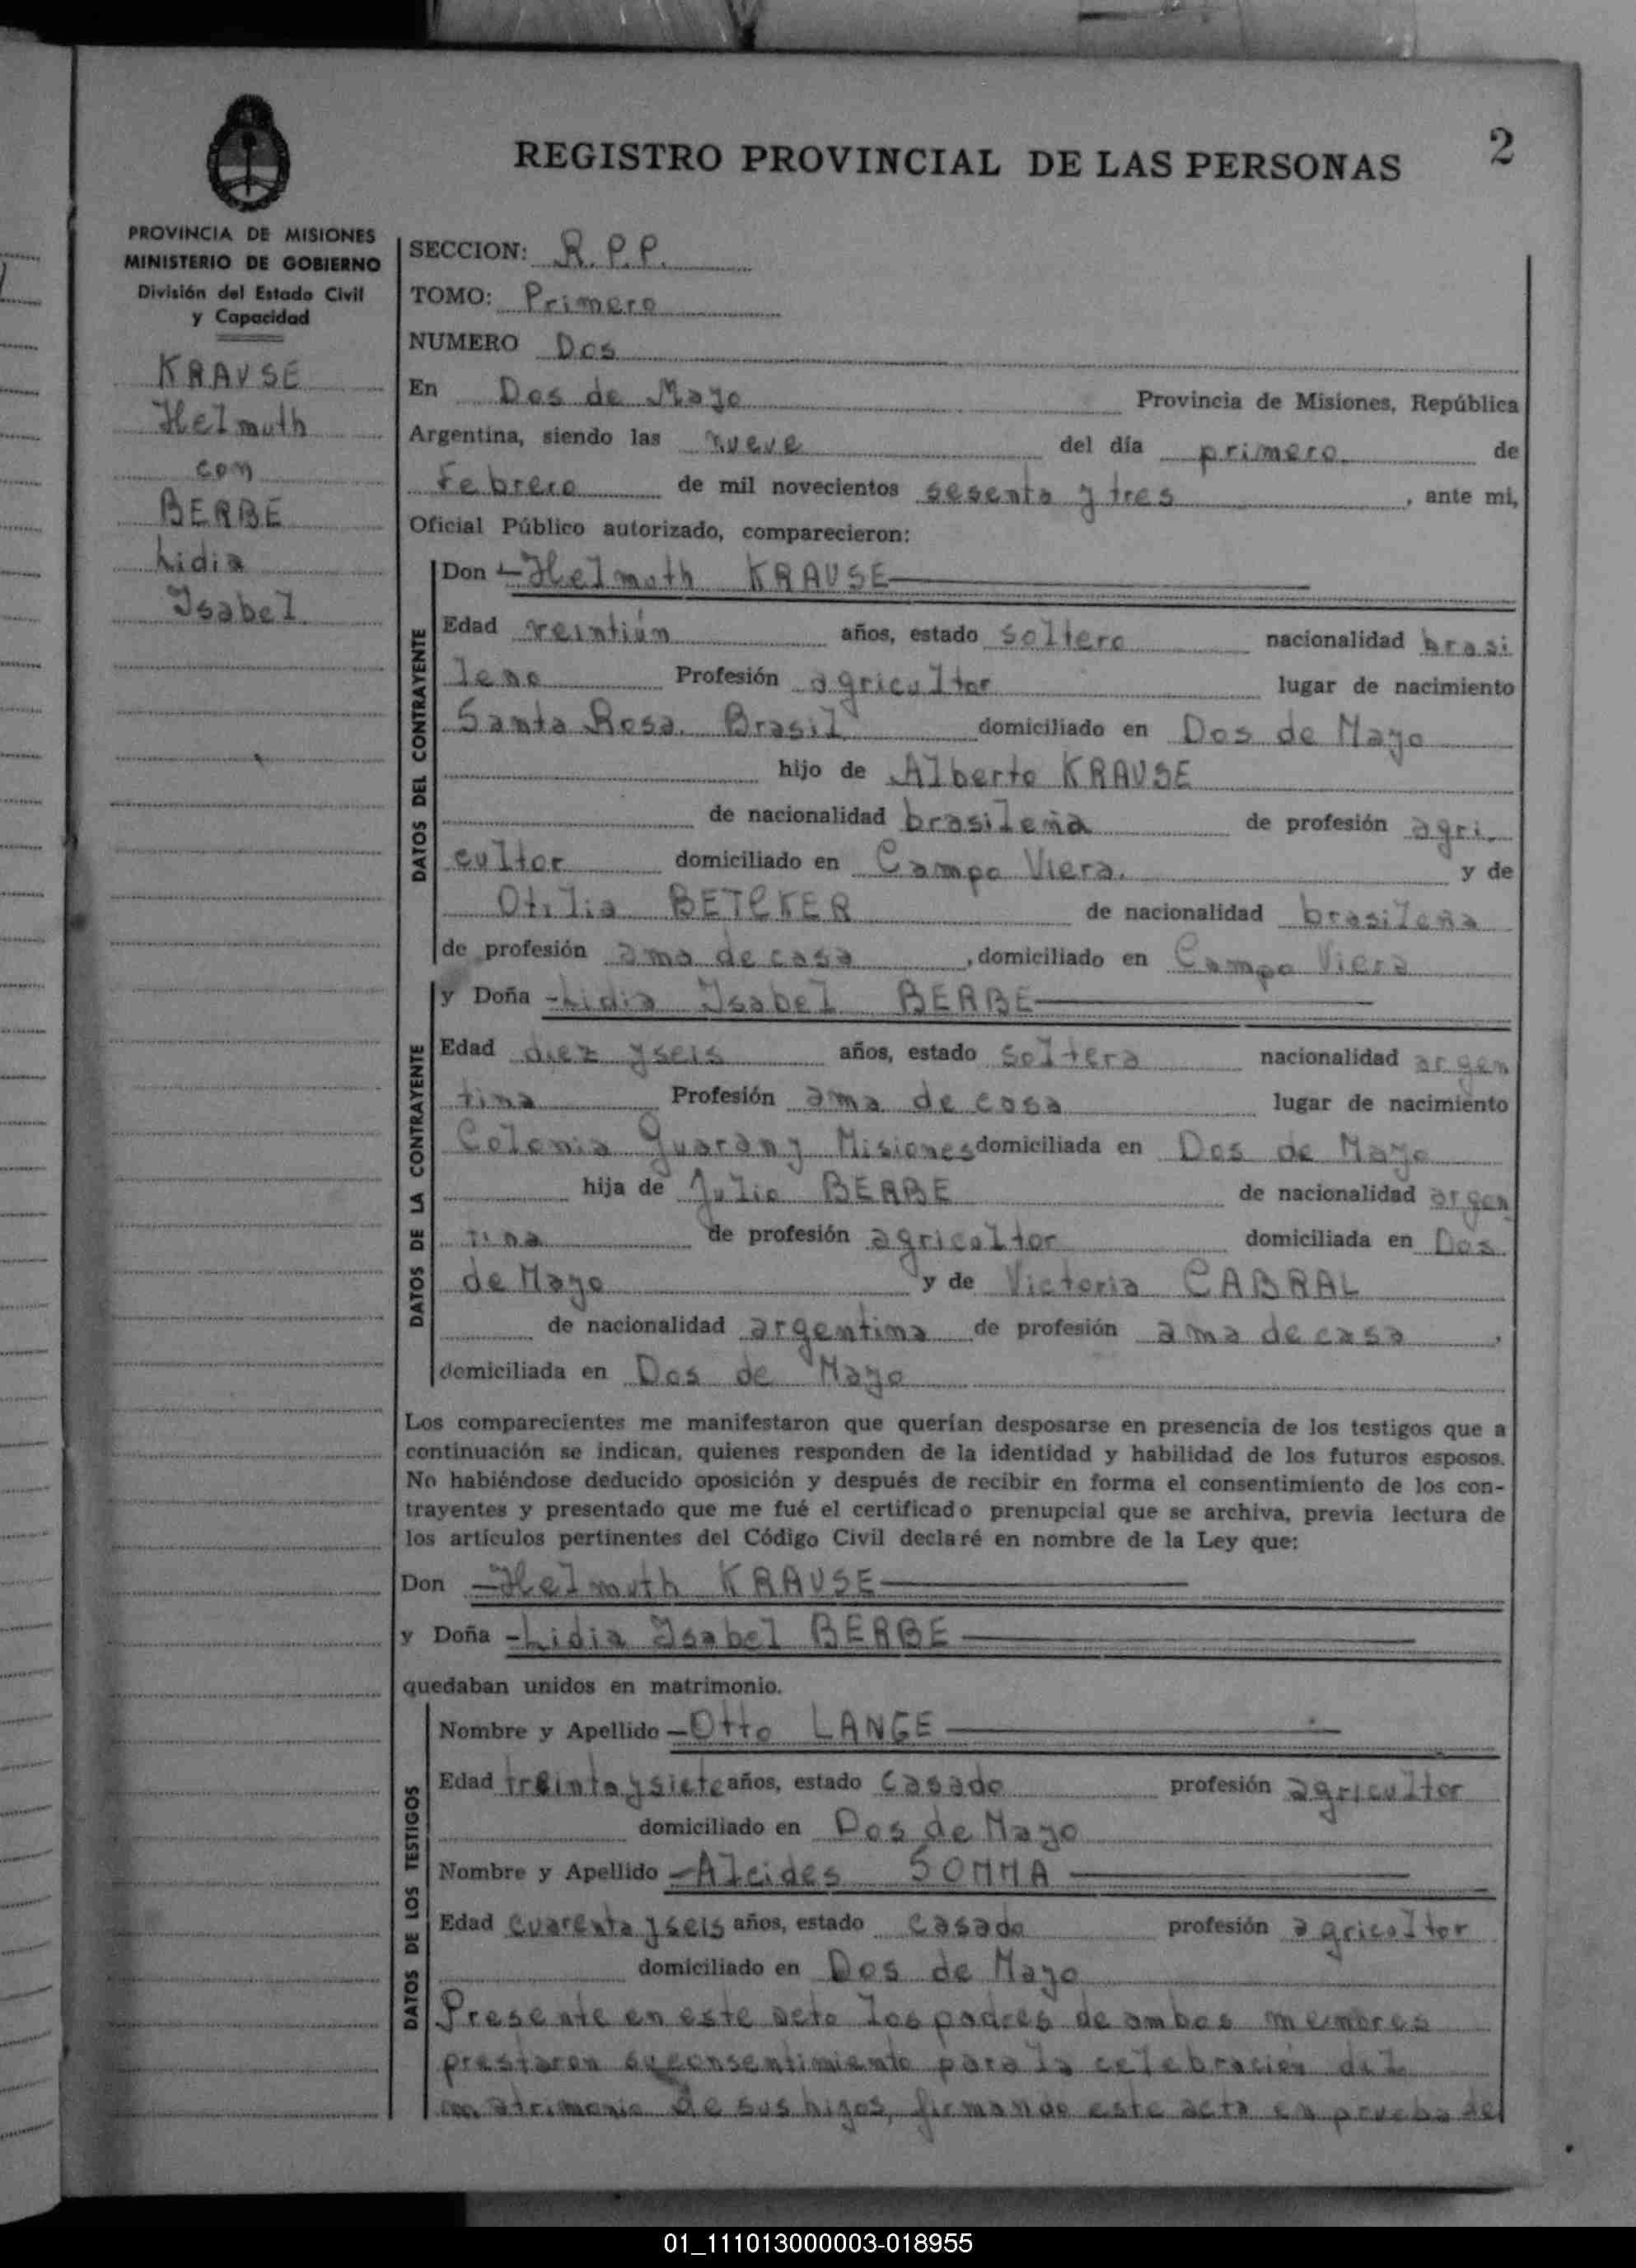 2
REGISTRO PROVINCIAL DE LAS PERSONAS
PROVINCIA DE MISIONES
MINISTERIO DE GOBIERNO
División del Estado Civil
y Capacidad
KRAUSE
Helmuth
con
BERBE
Lidia
Isabel
SECCION: R.P.P.
TOMO: Primero
NUMERO Dos
En Dos de Mayo Provincia de Misiones, República
Argentina, siendo las nueve del día primero de
Febrero de mil novecientos sesenta y tres, ante mi,
Oficial Público autorizado, comparecieron:
DATOS DEL CONTRAYENTE
Don - Helmuth KRAUSE
Edad veintiún años, estado soltero nacionalidad brasi
leno Profesión agricultor lugar de nacimiento
Santa Rosa. Brasil domiciliado en Dos de Mayo
hijo de Alberto KRAUSE
de nacionalidad brasileña de profesión agri.
cultor domiciliado en Campo Viera. y de
Otilia BETCKER de nacionalidad brasileña
de profesión ama de casa, domiciliado en Campo Viera
DATOS DE LA CONTRAYENTE
y Doña - Lidia Isabel BERBE
Edad diez y seis años, estado soltera nacionalidad argen
tina Profesión ama de casa lugar de nacimiento
Colonia Guarany Misiones domiciliada en Dos de Mayo
hija de Julio BERBE de nacionalidad argen
tina de profesión agricultor domiciliada en Dos
de Mayo y de Victoria CABRAL
de nacionalidad argentina de profesión ama de casa,
domiciliada en Dos de Mayo
Los comparecientes me manifestaron que querían desposarse en presencia de los testigos que a
continuación se indican, quienes responden de la identidad y habilidad de los futuros esposos.
No habiéndose deducido oposición y después de recibir en forma el consentimiento de los con-
trayentes y presentado que me fué el certificado prenupcial que se archiva, previa lectura de
los artículos pertinentes del Código Civil declaré en nombre de la Ley que:
Don - Helmuth KRAUSE
y Doña - Lidia Isabel BERBE
quedaban unidos en matrimonio.
DATOS DE LOS TESTIGOS
Nombre y Apellido - Otto LANGE
Edad treinta y siete años, estado casado profesión agricultor
domiciliado en Dos de Mayo
Nombre y Apellido - Alcides SOMMA
Edad cuarenta y seis años, estado casado profesión agricultor
domiciliado en Dos de Mayo
Presente en este acto los padres de ambos menores
prestaron su consentimiento para la celebración del
matrimonio de sus hijos, firmando este acta en prueba de
01_111013000003-018955